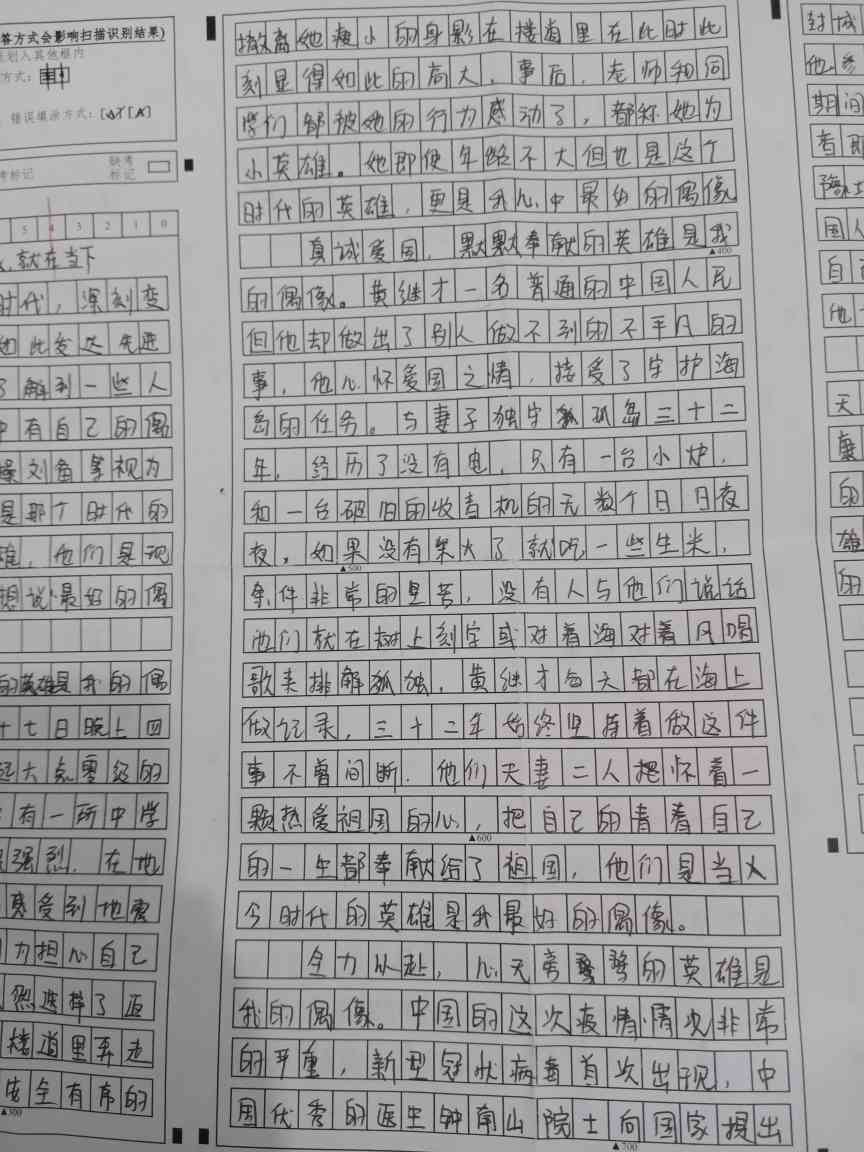 答方式会影响扫描识别结果)
划入其他框内
方式:
错误填涂方式:
考标记
缺考
标记
5 4 3 2 1 0
就在当下
时代,深刻变
如此发达先进
了解到一些人
中有自己的偶
操刘备等视为
是那个时代的
雄,他们是现
想说最好的偶
的英雄是我的偶
十七日晚上四
大气零级的
有一所中学
强烈.在地
感受到地震
力担心自己
然选择了返
楼道里奔走
安全有序的
▲300
撤离她瘦小的身影在楼道里在此时此
刻显得如此的高大,事后,老师和同
学们都被她的行为感动了,都称她为
小英雄。她即使年龄不大但也是这个
时代的英雄,更是我心中最好的偶像
真诚爱国,默默奉献的英雄是我
▲400
的偶像。黄继才一名普通的中国人民
但他却做出了别人做不到的不平凡的
事,他心怀爱国之情,接受了守护海
岛的任务。与妻子独守孤岛三十二
年,经历了没有电,只有一台小炉,
和一台破旧的收音机的无数个日日夜
夜,如果没有柴火了就吃一些生米,
▲500
条件非常的艰苦,没有人与他们说话
他们就在树上刻字或对着海对着风唱
歌来排解孤独,黄继才每天都在海上
做记录,三十二年始终坚持着做这件
事不曾间断.他们夫妻二人把怀着一
颗热爱祖国的心,把自己的青春自己
▲600
的一生都奉献给了祖国,他们是当之
今时代的英雄是我最好的偶像。
全力以赴,心无旁骛的英雄是
我的偶像。中国的这次疫情情况非常
的严重,新型冠状病毒首次出现,中
国优秀的医生钟南山院士向国家提出
▲700
封城
他参
期间
者
院士
国人
自
他
天
的
雄
的